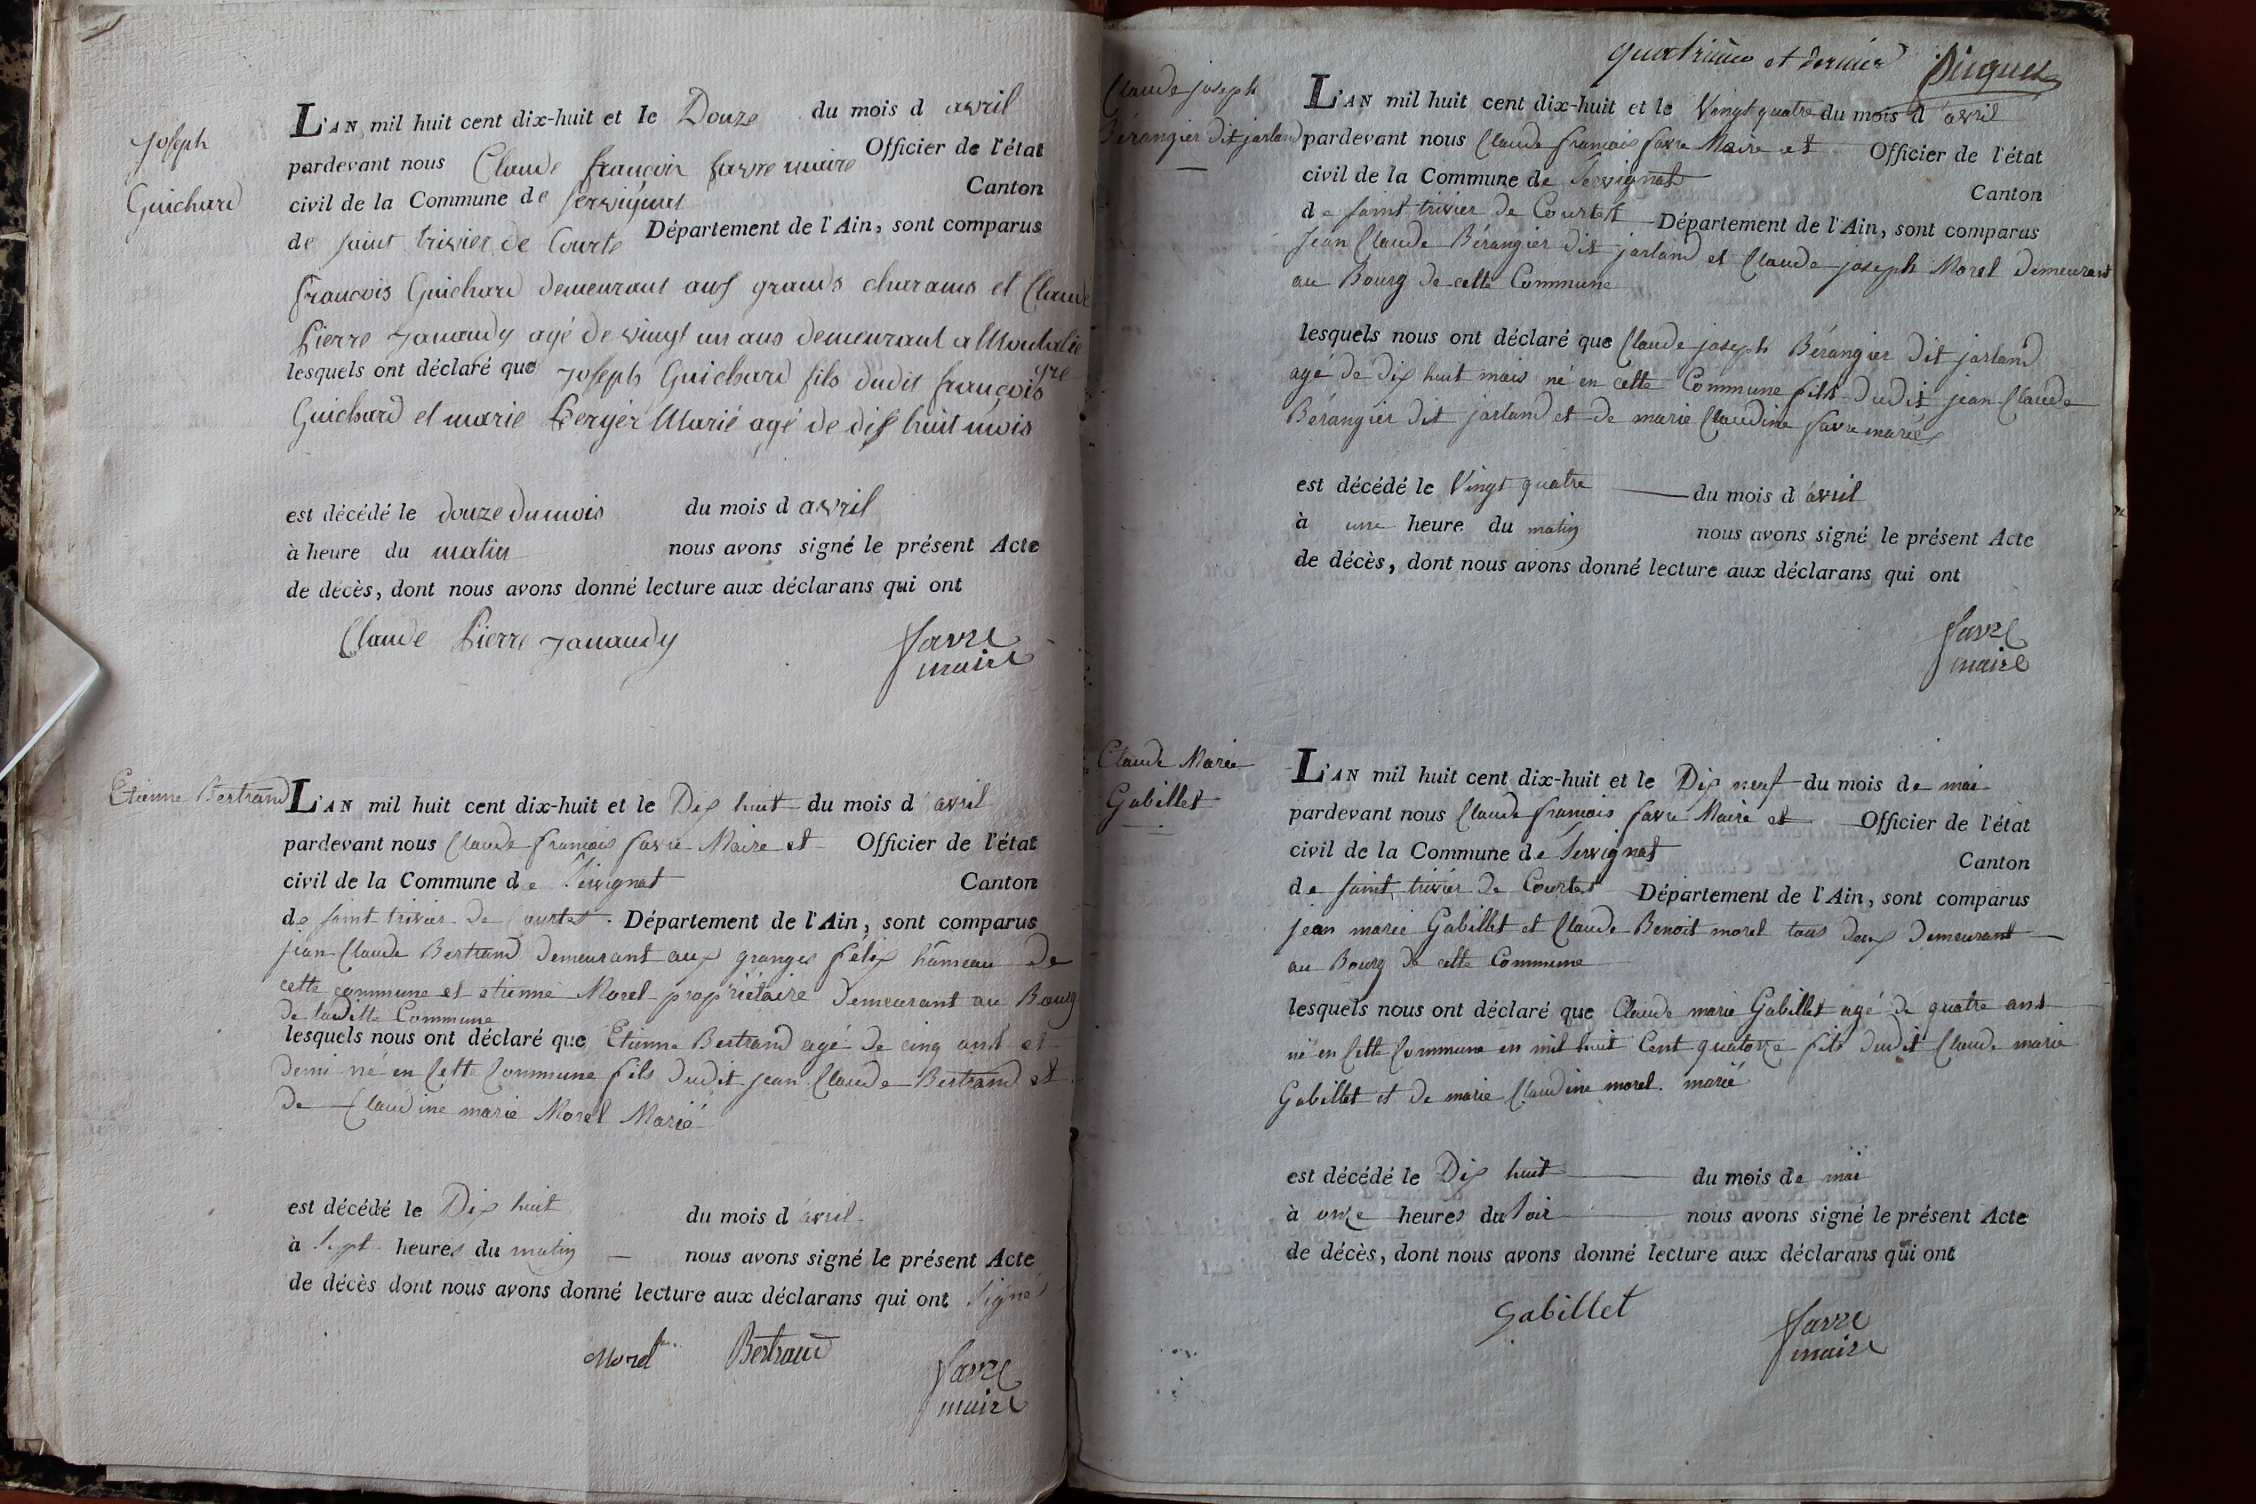 Joseph
Guichard
L'AN mil huit cent dix-huit et le Douze du mois d avril
pardevant nous Claude françois favre maire Officier de l'état
civil de la Commune de Servignat Canton
de Saint trivier de Courte Département de l'Ain, sont comparus
françois Guichard demeurant aux grands charams et Claude
Pierre Janaudy agé de vingt un ans demeurant a
lesquels ont déclaré que Joseph Guichard fils dudit françois
Guichard et marie Berger Marié agé de dix huit mois
est décédé le douze du mois du mois d avril
à heure du matin nous avons signé le présent Acte
de décès, dont nous avons donné lecture aux déclarans qui ont
Claude Pierre Janaudy
favre
maire
Etienne Bertrand
L'AN mil huit cent dix-huit et le Dix huit du mois d'avril
pardevant nous Claude francois favre Maire et Officier de l'état
civil de la Commune de Servignat Canton
de saint trivier de Courtes. Département de l'Ain, sont comparus
jean Claude Bertrand demeurant aux granges félix hameau de
cette commune et etienne Morel propriétaire demeurant au Bourg
de laditte Commune
lesquels nous ont déclaré que Etienne Bertrand agé de cinq ans et
demi né en Cette Commune fils dudit jean Claude Bertrand et
de Claudine marie Morel Marié
est décédé le Dix huit du mois d'avril
à Sept heures du matin nous avons signé le présent Acte
de décès dont nous avons donné lecture aux déclarans qui ont Signés
Morel Bertrand
favre
maire
quatrième et dernier
Claude joseph
Bérangier dit jarland
L'AN mil huit cent dix-huit et le Vingt quatre du mois d'avril
pardevant nous Claude francois favre Maire et Officier de l'état
civil de la Commune de Servignat Canton
de saint trivier de Courtes Département de l'Ain, sont comparus
Jean Claude Bérangier dit jarland et Claude joseph Morel demeurant
au Bourg de cette Commune
lesquels nous ont déclaré que Claude joseph Bérangier dit jarland
agé de dix huit mois né en cette Commune fils dudit jean Claude
Bérangier dit jarland et de marie Claudine favre mariés
est décédé le Vingt quatre du mois d'avril
à une heure du matin nous avons signé le présent Acte
de décès, dont nous avons donné lecture aux déclarans qui ont
favre
maire
Claude Marie
Gabillet
L'AN mil huit cent dix-huit et le Dix neuf du mois de mai
pardevant nous Claude francois favre Maire et Officier de l'état
civil de la Commune de Servignat Canton
de saint trivier de Courtes Département de l'Ain, sont comparus
jean marie Gabillet et Claude Benoit morel tous deux demeurant
au Bourg de cette Commune
lesquels nous ont déclaré que Claude marie Gabillet agé de quatre ans
né en Cette Commune en mil huit Cent quatorze fils dudit Claude marie
Gabillet et de marie Claudine morel. marié
est décédé le Dix huit du mois de mai
à onze heures du Soir nous avons signé le présent Acte
de décès, dont nous avons donné lecture aux déclarans qui ont
Gabillet
favre
maire